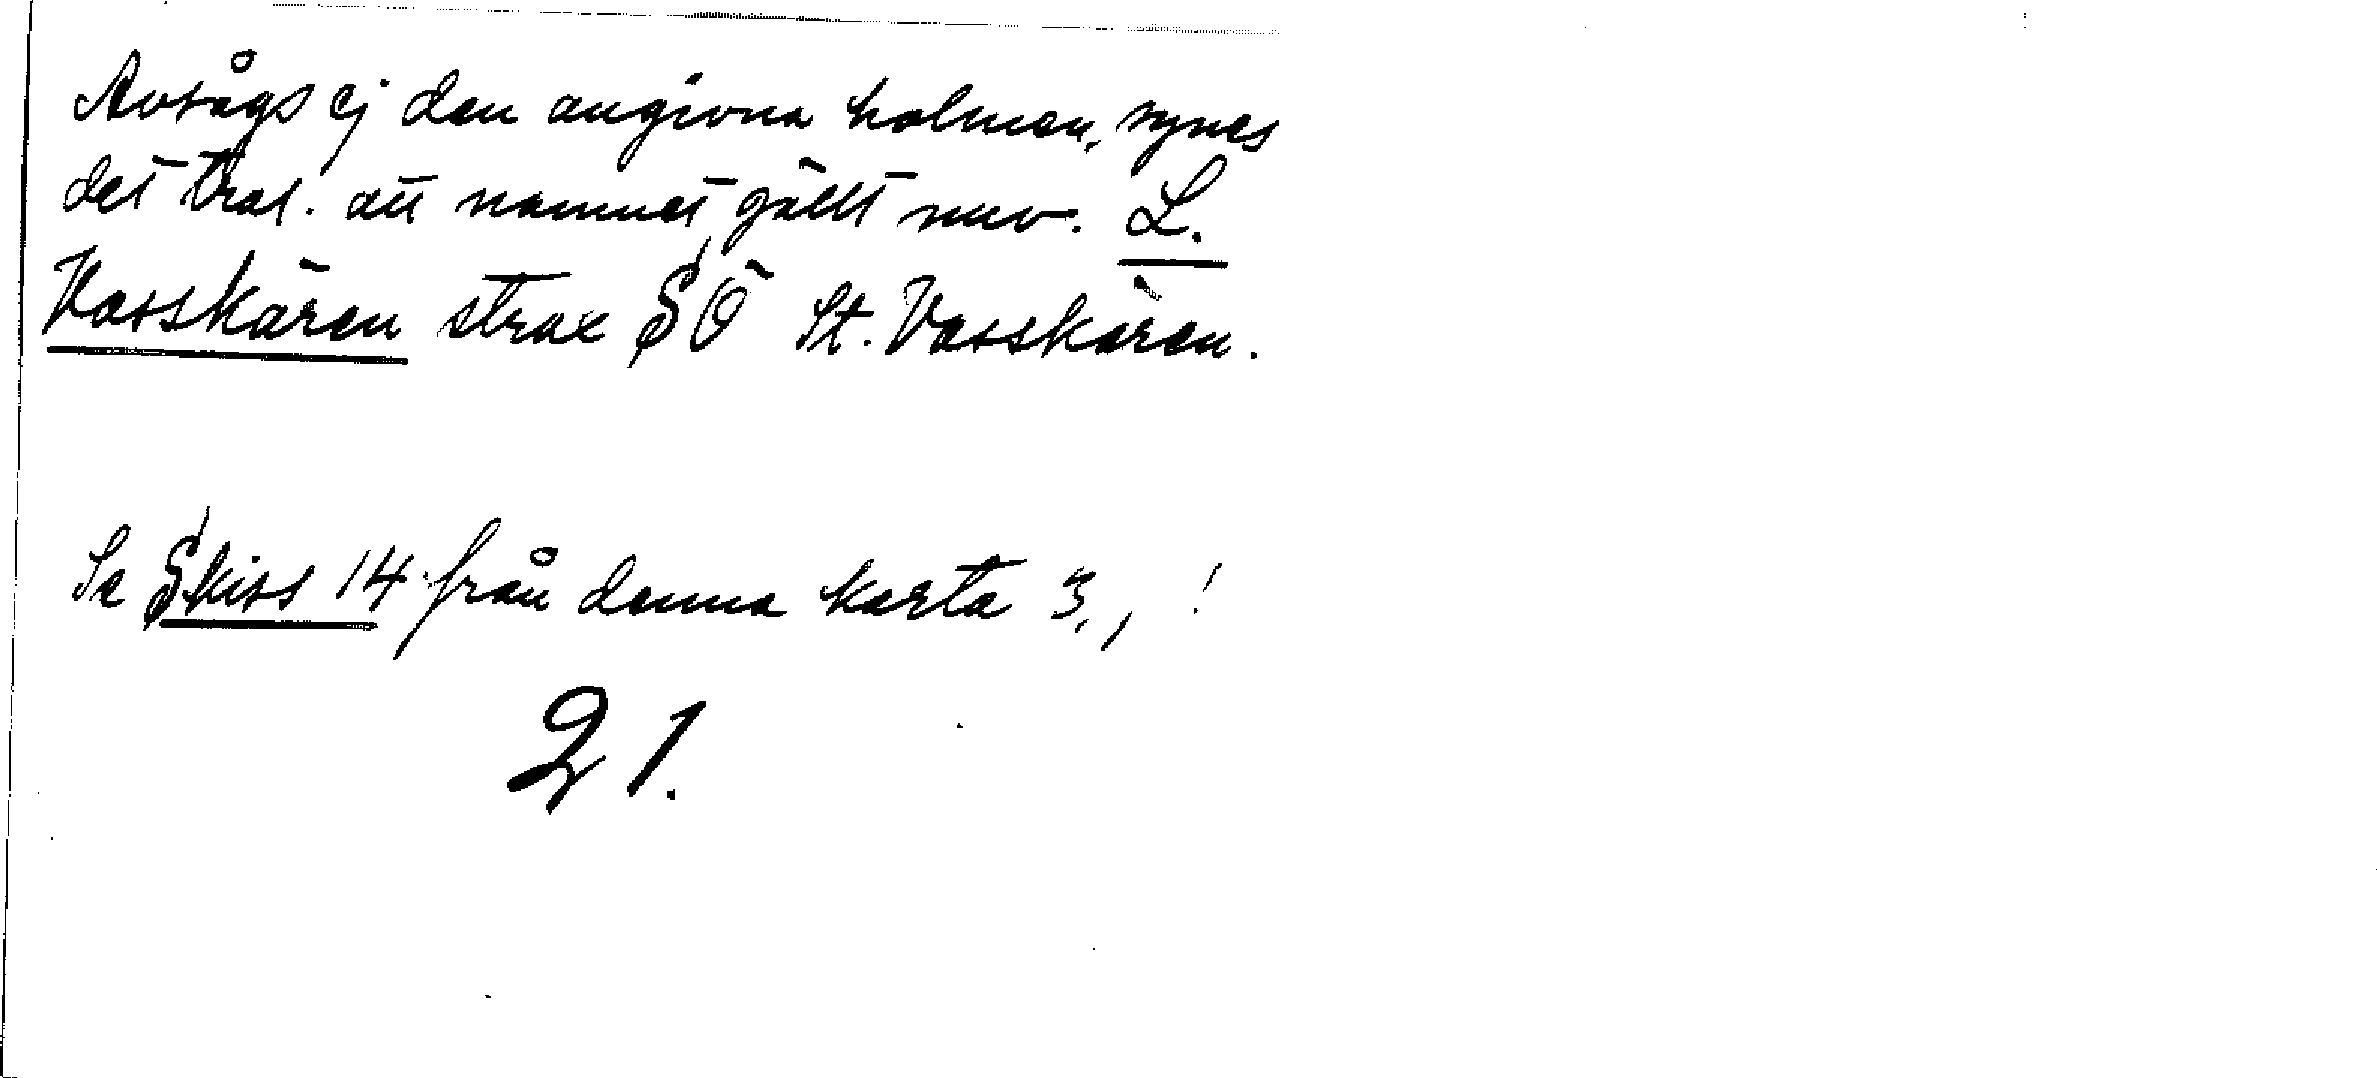 Avsågs ej den angivna holmen, synes
det trol. att namnet gällt nuv. L.
Vasskären strax SÖ St. Vasskären.
Se Skiss 14 från denna karta 3, !
21.